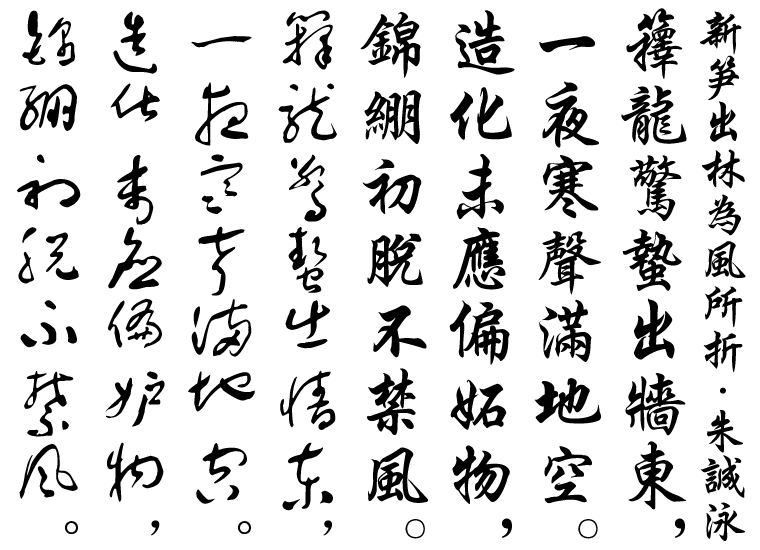 新笋出林為風所折·朱誠泳
籜龍驚蟄出牆東，
一夜寒聲滿地空。
造化未應偏妬物，
錦繃初脫不禁風。
籜龍驚蟄出牆東，
一夜寒聲滿地空。
造化未應偏妒物，
錦繃初脫不禁風。